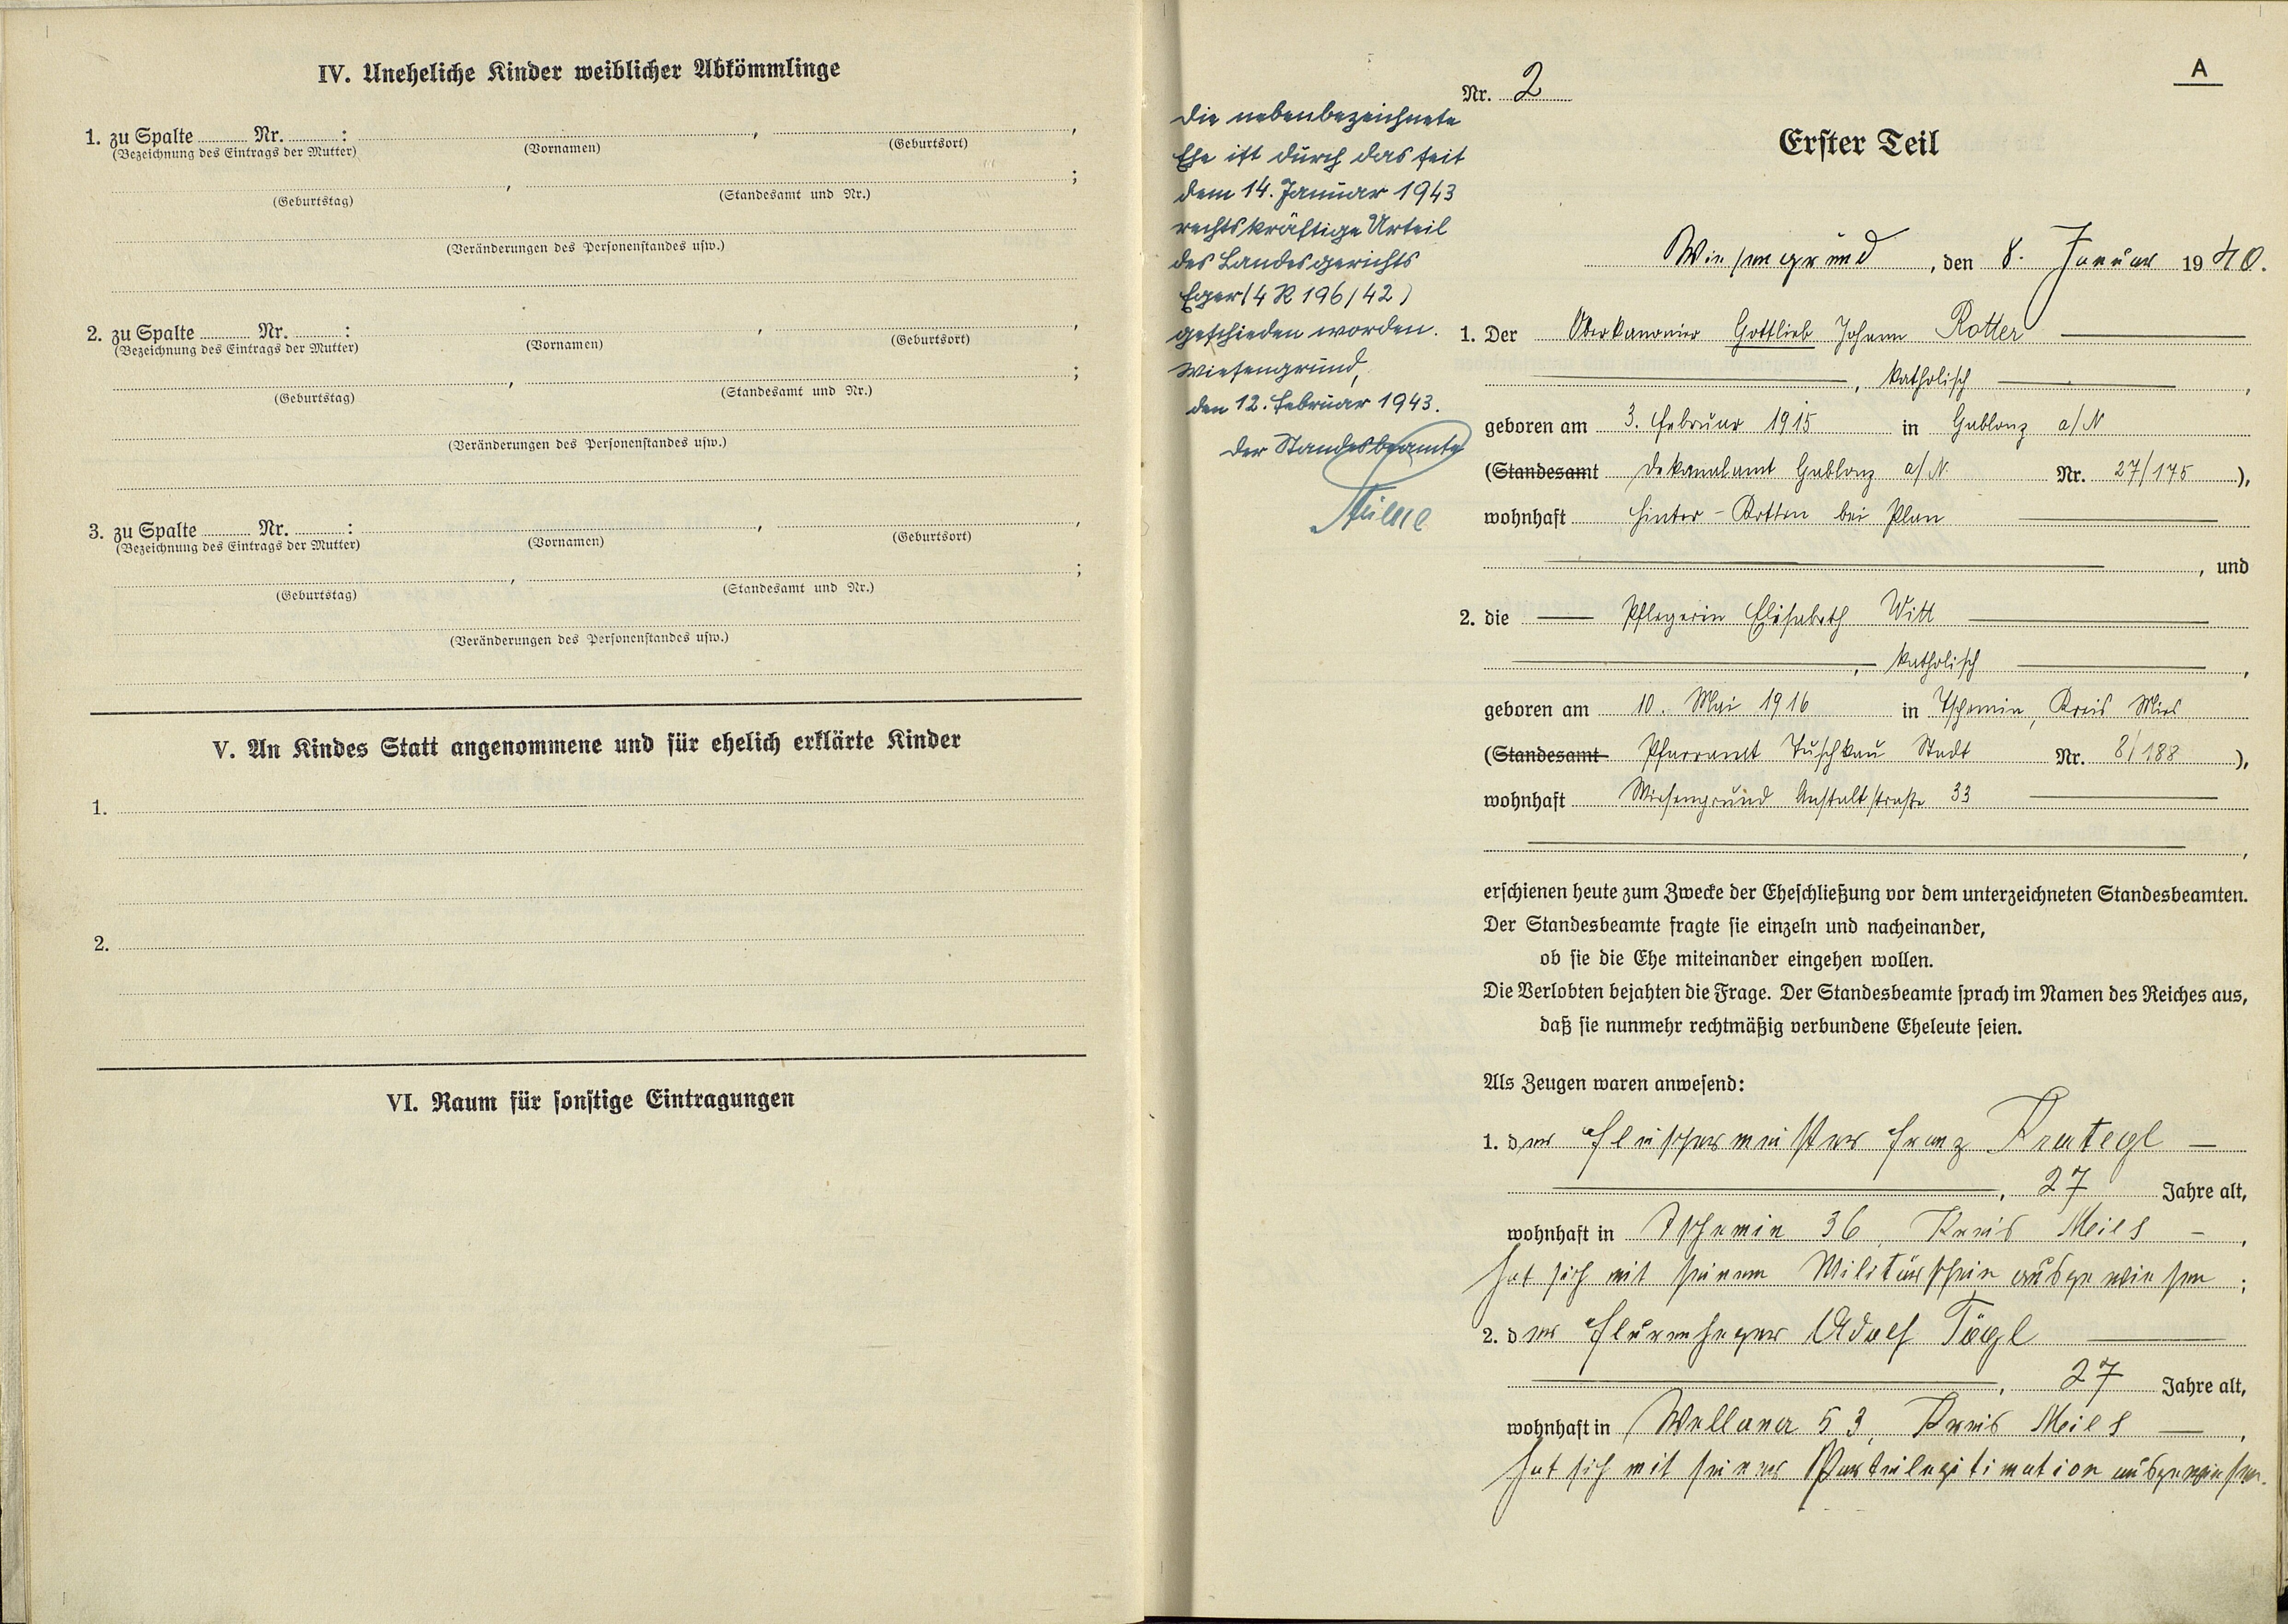 IV. Uneheliche Kinder weiblicher Abkömmlinge
1. zu Spalte ........ Nr. ........:
(Bezeichnung des Eintrags der Mutter) (Vornamen) , (Geburtsort) ,
(Geburtstag) , (Standesamt und Nr.) ;
(Veränderungen des Personenstandes usw.)
2. zu Spalte ........ Nr. ........:
(Bezeichnung des Eintrags der Mutter) (Vornamen) , (Geburtsort) ,
(Geburtstag) , (Standesamt und Nr.) ;
(Veränderungen des Personenstandes usw.)
3. zu Spalte ........ Nr. ........:
(Bezeichnung des Eintrags der Mutter) (Vornamen) , (Geburtsort) ,
(Geburtstag) , (Standesamt und Nr.) ;
(Veränderungen des Personenstandes usw.)
V. An Kindes Statt angenommene und für ehelich erklärte Kinder
1.
2.
VI. Raum für sonstige Eintragungen
A
Nr. 2
Die nebenbezeichnete
Ehe ist durch das seit
dem 14. Januar 1943
rechtskräftige Urteil
des Landesgerichts
Eger (4 R 196/42)
geschieden worden.
Wiesengrund,
den 12. Februar 1943.
Der Standesbeamte
Erster Teil
Wiesengrund, den 8. Januar 1940.
1. Der Oberkanonier Gottlieb Johann Rotter
, katholisch ,
geboren am 3. Februar 1915 in Gablonz a/N
(Standesamt Dekanalamt Gablonz a/N. Nr. 27/175 ),
wohnhaft Hinter-Kotten bei Plan
, und
2. die Pflegerin Elisabeth Witt
, katholisch ,
geboren am 10. Mai 1916 in Tschemin, Kreis Mies
(Standesamt Pfarramt Tuschkau Stadt Nr. 8/188 ),
wohnhaft Wiesengrund Anstaltstraße 33
,
erschienen heute zum Zwecke der Eheschließung vor dem unterzeichneten Standesbeamten.
Der Standesbeamte fragte sie einzeln und nacheinander,
ob sie die Ehe miteinander eingehen wollen.
Die Verlobten bejahten die Frage. Der Standesbeamte sprach im Namen des Reiches aus,
daß sie nunmehr rechtmäßig verbundene Eheleute seien.
Als Zeugen waren anwesend:
1. der Fleischermeister Franz
, 27 Jahre alt,
wohnhaft in Tschemin 36, Kreis Mies ,
hat sich mit seinem Militärschein ausgewiesen ;
2. der Adolf Tögl
, 27 Jahre alt,
wohnhaft in 53, Kreis Mies ,
hat sich mit seiner Parteilegitimation ausgewiesen.